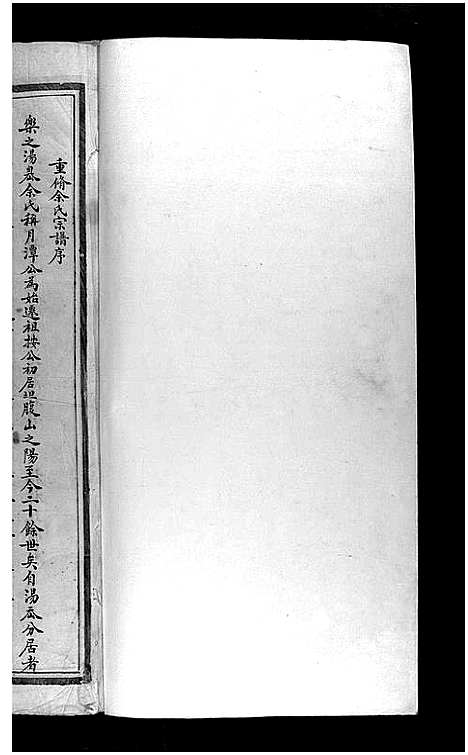 重脩余氏宗譜序
樂之湯岙余氏稱月潭公為始遷祖按公初居坦腹山之陽至今二十餘世矣自湯岙分居者